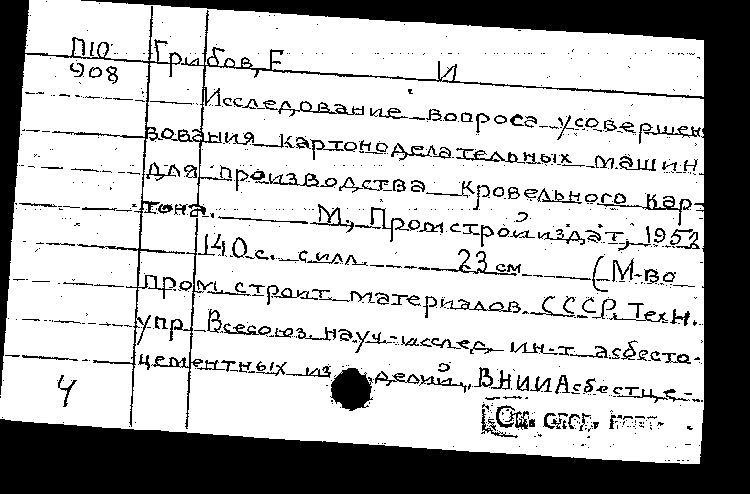 П10 Грибов, Е И
908
Исследование вопроса усовершен
вования картоноделательных машин
для производства кровельного кар-
тона. М., Промстройиздат, 1952
140 с. с илл. 23 см (М-во
пром. строит. материалов СССР. Техн.
упр Всесоюз. науч.-исслед. ин-т асбесто-
цементных из делий, ВНИИАсбестце-
4 См. след. карт.